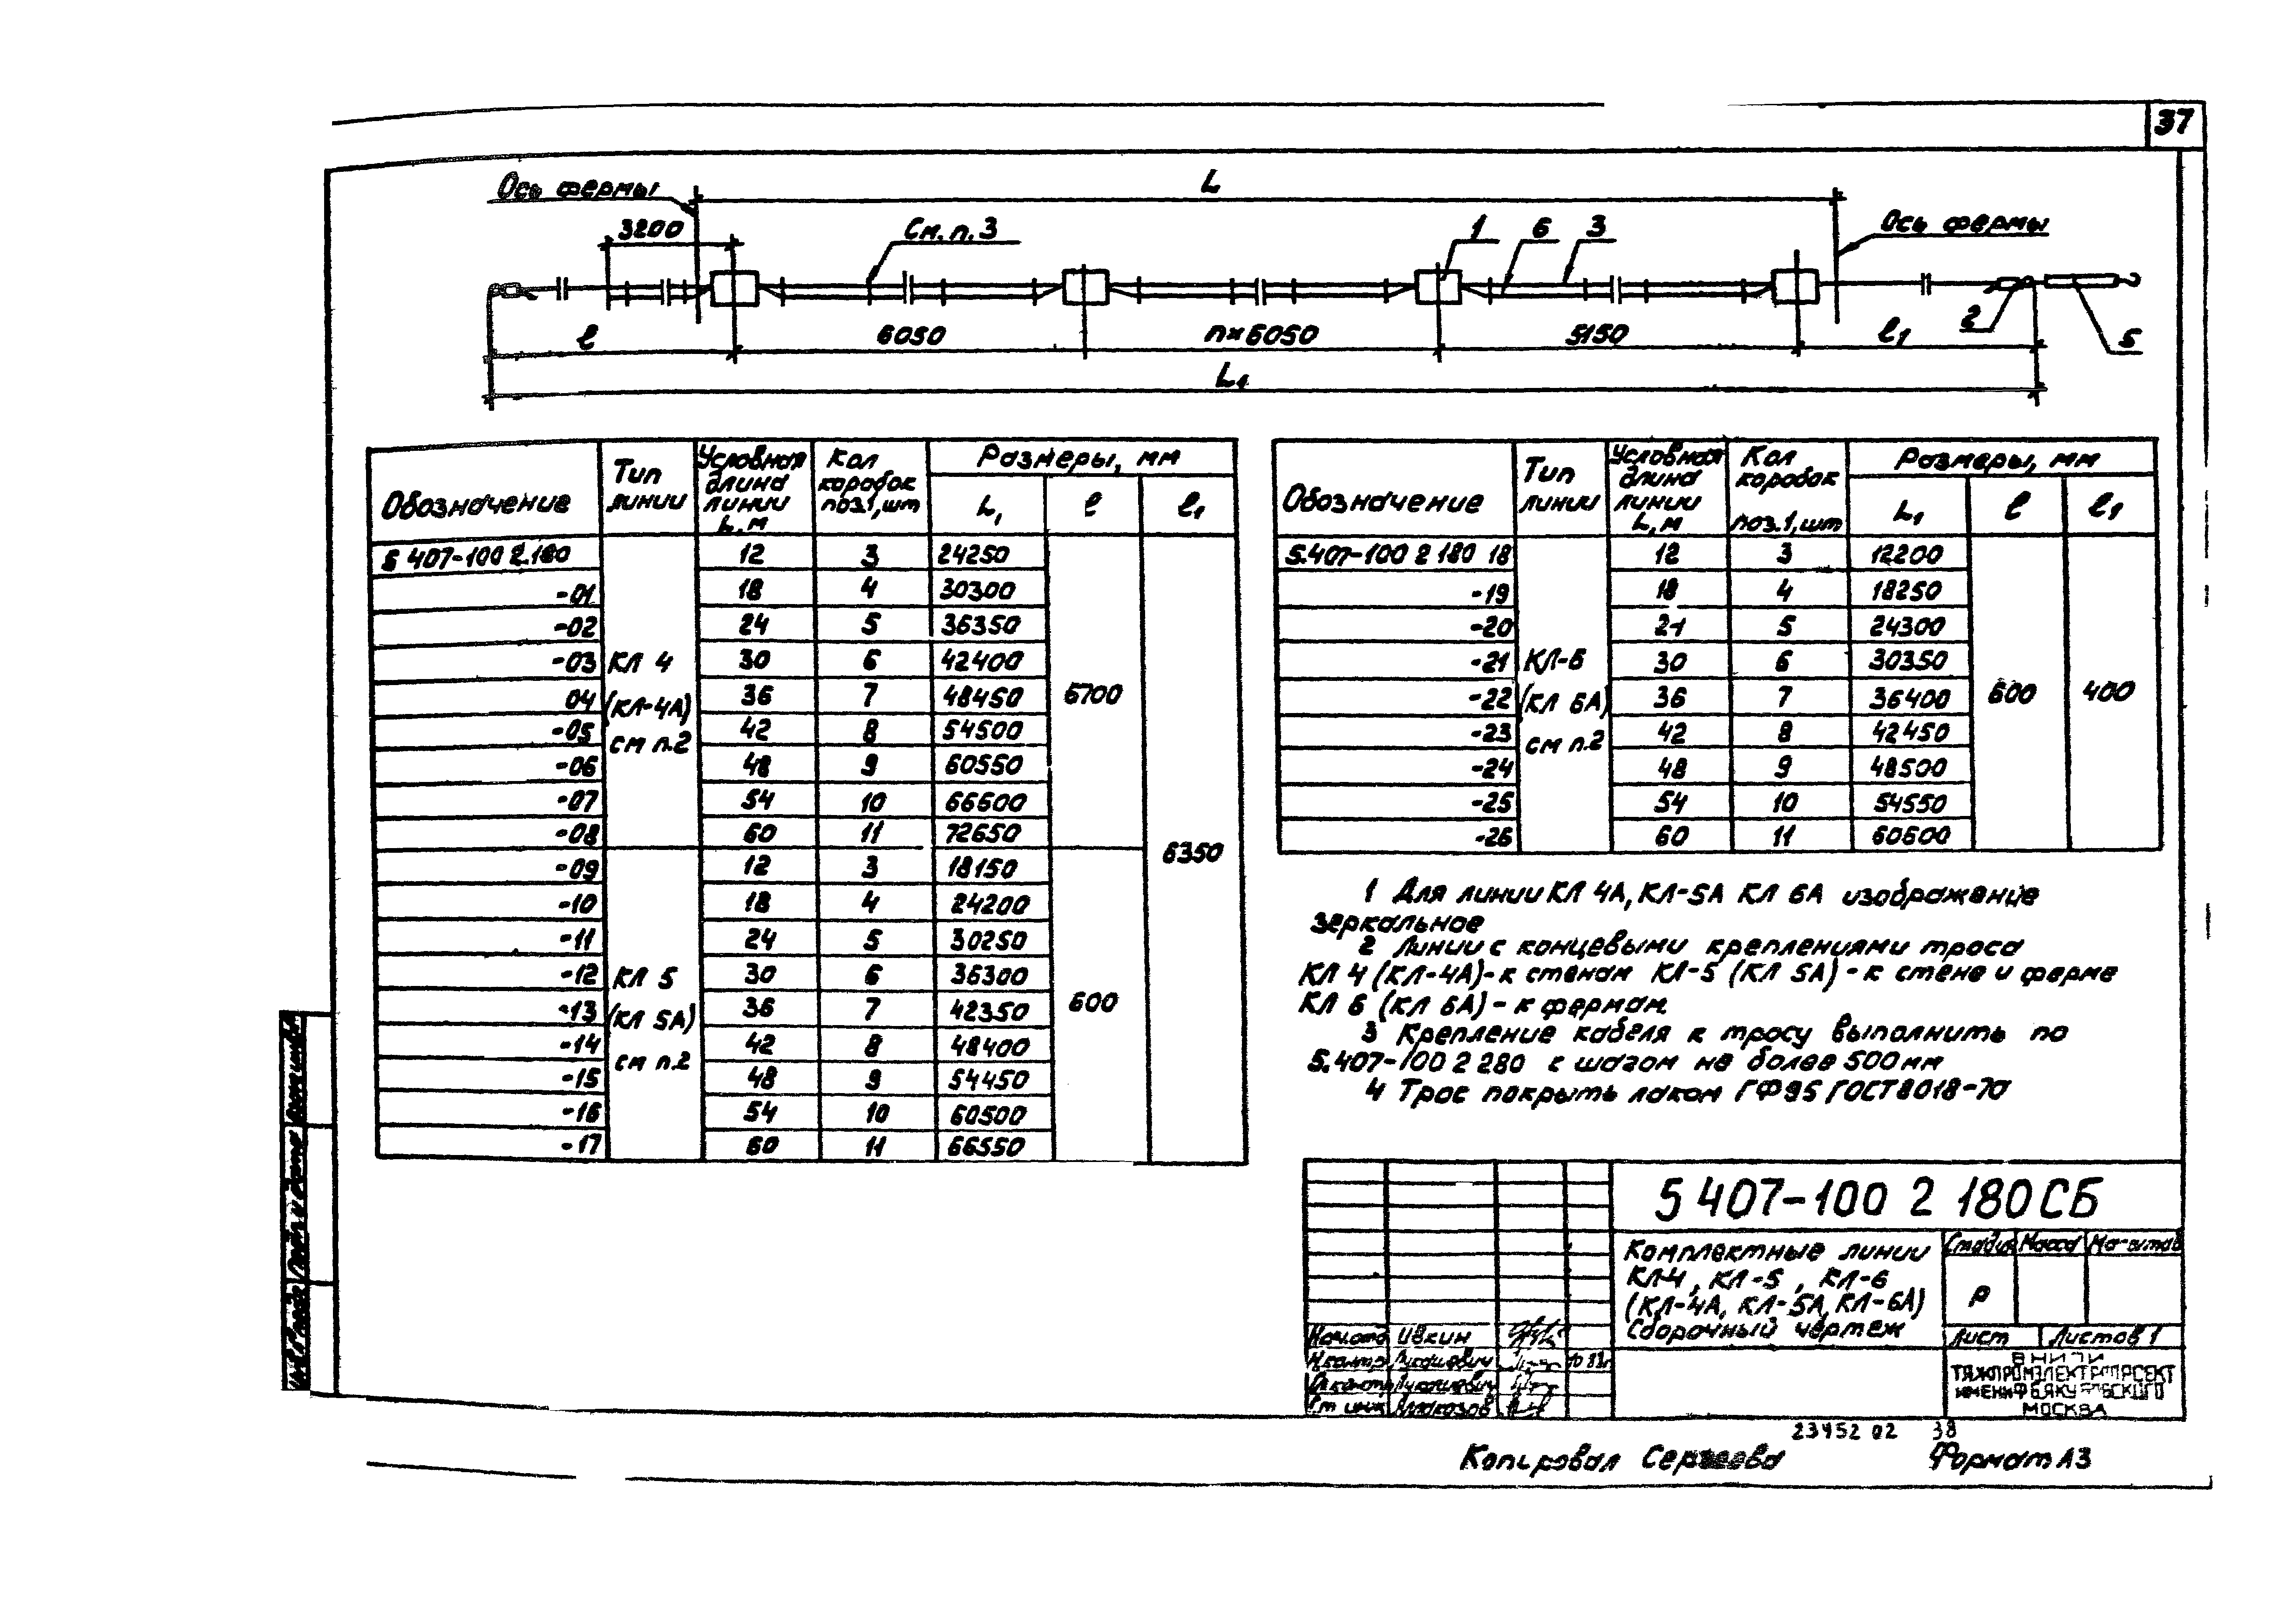 37
Ось фермы
L
3200
См. п. 3
1
6
3
Ось фермы
2
5
l
6050
п×6050
5150
l1
L1
Обозначение
Тип линии
Условная длина линии L, м
Кол коробок поз.1, шт
Размеры, мм
L1
l
l1
5 407-100 2.180 12 3 24250
-01 18 4 30300
-02 24 5 36350
-03 30 6 42400
04 36 7 48450
-05 42 8 54500
-06 48 9 60550
-07 54 10 66600
-08 60 11 72650
КЛ 4
(КЛ-4А)
см п.2
6700
-09 12 3 18150
-10 18 4 24200
-11 24 5 30250
-12 30 6 36300
-13 36 7 42350
-14 42 8 48400
-15 48 9 54450
-16 54 10 60500
-17 60 11 66550
КЛ 5
(КЛ 5А)
см п.2
600
6350
Обозначение
Тип линии
Условная длина линии L, м
Кол коробок поз.1, шт
Размеры, мм
L1
l
l1
5.407-100 2 180 18 12 3 12200
-19 18 4 18250
-20 24 5 24300
-21 30 6 30350
-22 36 7 36400
-23 42 8 42450
-24 48 9 48500
-25 54 10 54550
-26 60 11 60600
КЛ-6
(КЛ 6А)
см п.2
600
400
1 Для линии КЛ 4А, КЛ-5А КЛ 6А изображение
зеркальное
2 Линии с концевыми креплениями троса
КЛ 4 (КЛ-4А)- к стенам КЛ-5 (КЛ 5А) - к стене и ферме
КЛ 6 (КЛ 6А) - к фермам.
3 Крепление кабеля к тросу выполнить по
5.407-100 2 280 с шагом не более 500 мм
4 Трос покрыть лаком ГФ95 ГОСТ 8018-70
5 407-100 2 180 СБ
Комплектные линии
КЛ-4, КЛ-5, КЛ-6
(КЛ-4А, КЛ-5А, КЛ-6А)
Сборочный чертеж
Стадия Масса Масштаб
Р
Лист
Листов 1
Нач.отд Ивкин
Н.контр Лукашевич
Гл.констр Лукашевич
Ст инж
ВНИПИ
ТЯЖПРОМЭЛЕКТРОПРОЕКТ
ИМЕНИ Ф Б ЯКУБОВСКОГО
МОСКВА
23452 02 38
Копировал Сергеева
Формат А3